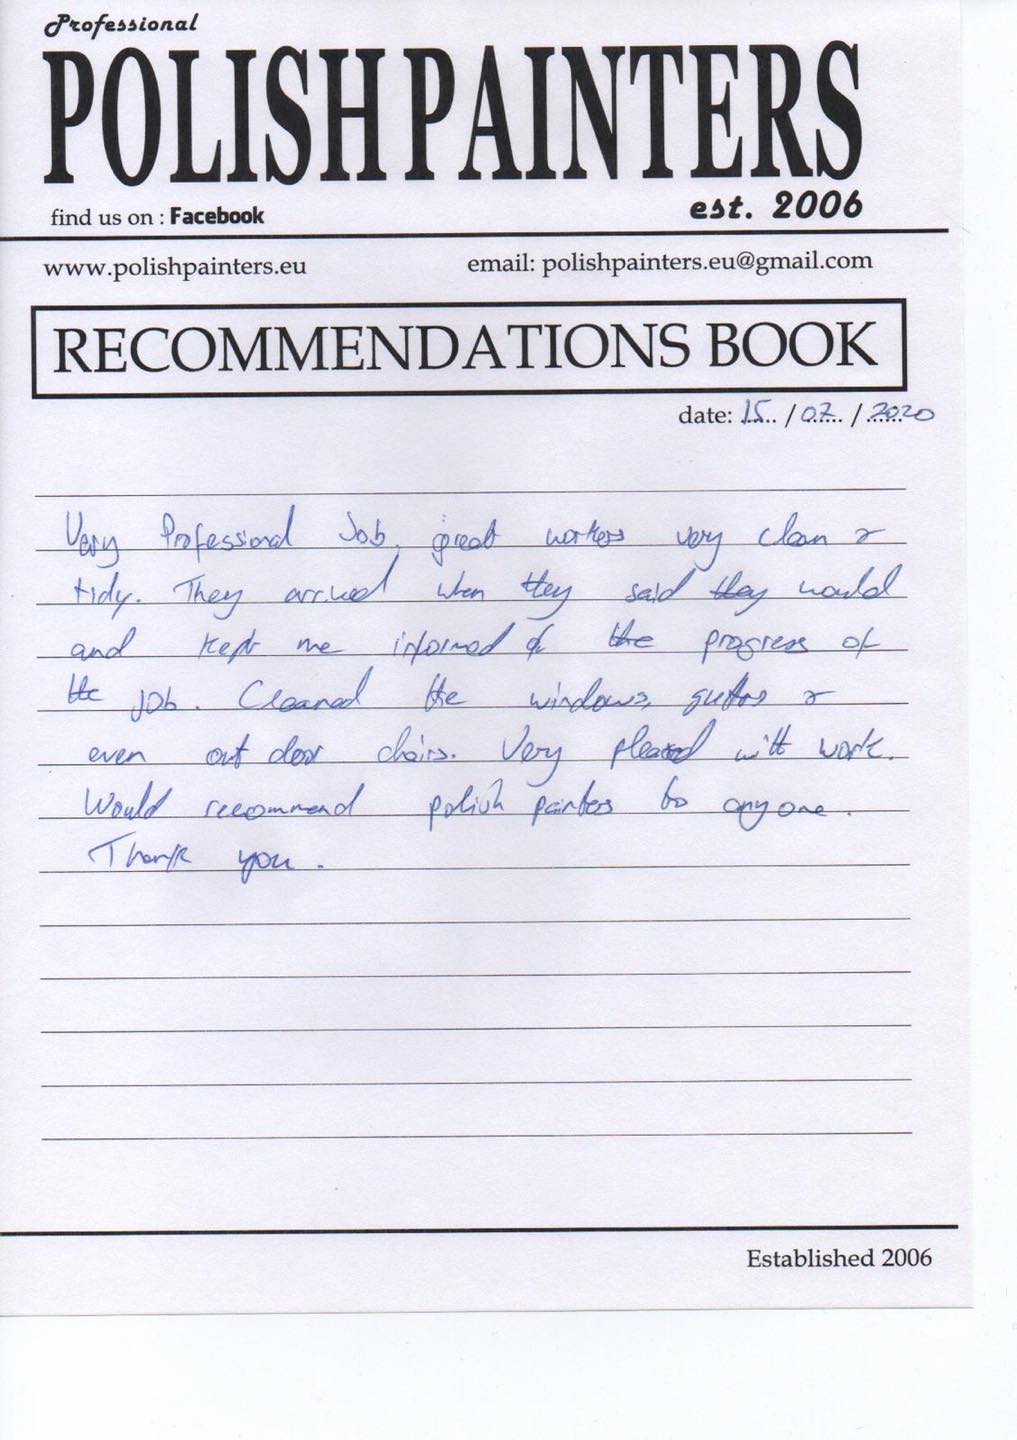 Professional
POLISH PAINTERS
find us on : Facebook
est. 2006
www.polishpainters.eu
email: polishpainters.eu@gmail.com
RECOMMENDATIONS BOOK
date: 15 / 07 / 2020
Very Professional Job, great workers very clean &
tidy. They arrived when they said they would
and kept me informed of the progress of
the job. Cleaned the windows, gutters &
even out door chairs. Very pleased with work.
Would recommend polish painters to anyone.
Thank you.
Established 2006